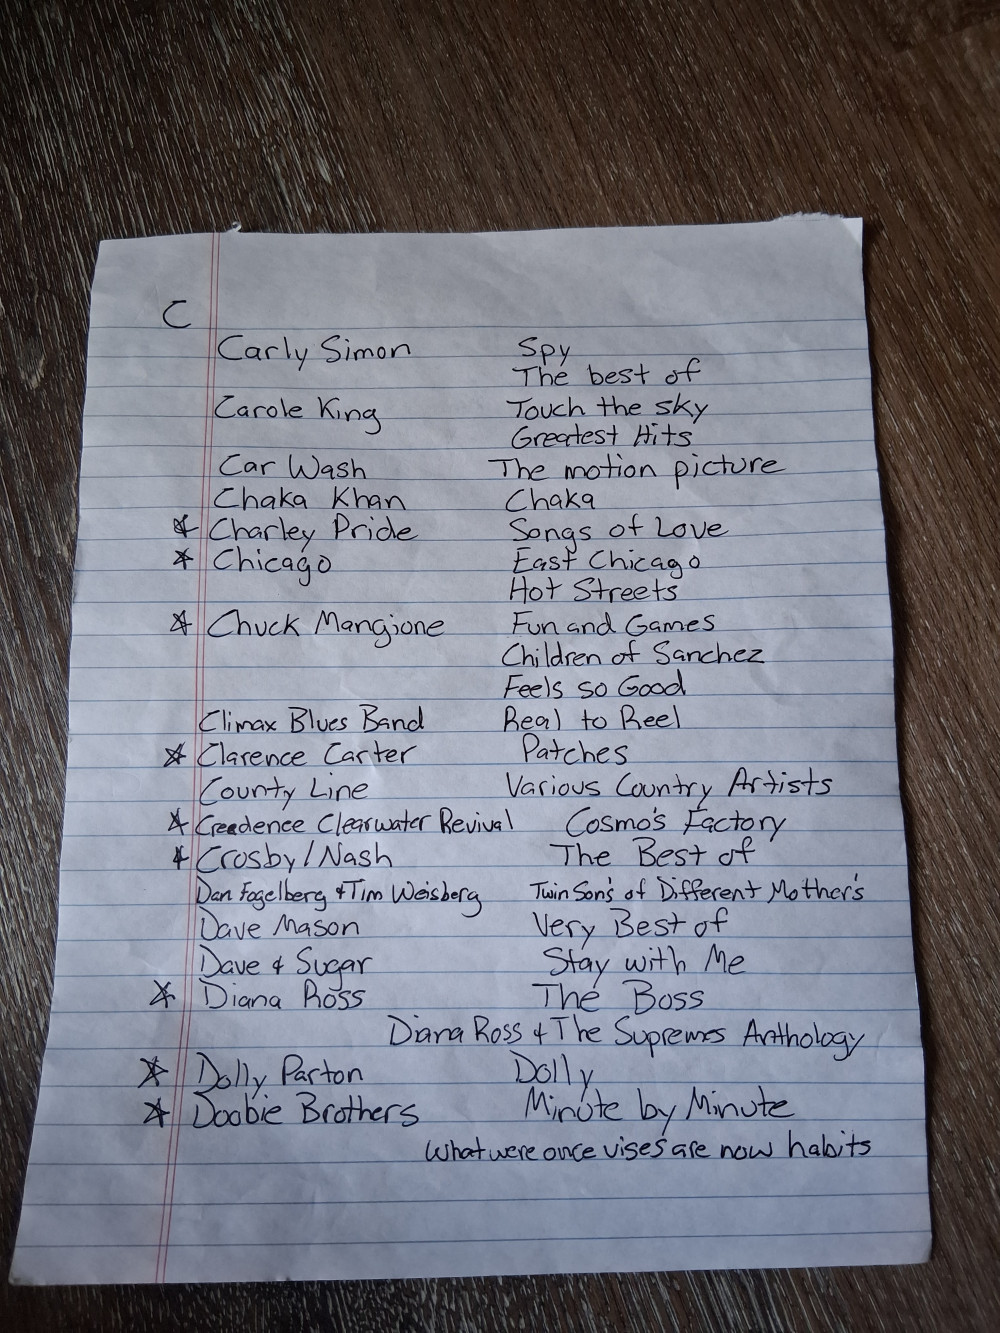 C
Carly Simon Spy
The best of
Carole King Touch the sky
Greatest Hits
Car Wash The motion picture
Chaka Khan Chaka
☆ Charley Pride Songs of Love
☆ Chicago East Chicago
Hot Streets
☆ Chuck Mangione Fun and Games
Children of Sanchez
Feels so Good
Climax Blues Band Real to Reel
☆ Clarence Carter Patches
County Line Various Country Artists
☆ Creedence Clearwater Revival Cosmo's Factory
☆ Crosby/Nash The Best of
Dan Fogelberg & Tim Weisberg Twin Son's of Different Mother's
Dave Mason Very Best of
Dave & Sugar Stay with Me
☆ Diana Ross The Boss
Diana Ross & The Supremes Anthology
☆ Dolly Parton Dolly
☆ Doobie Brothers Minute by Minute
What were once vises are now habits